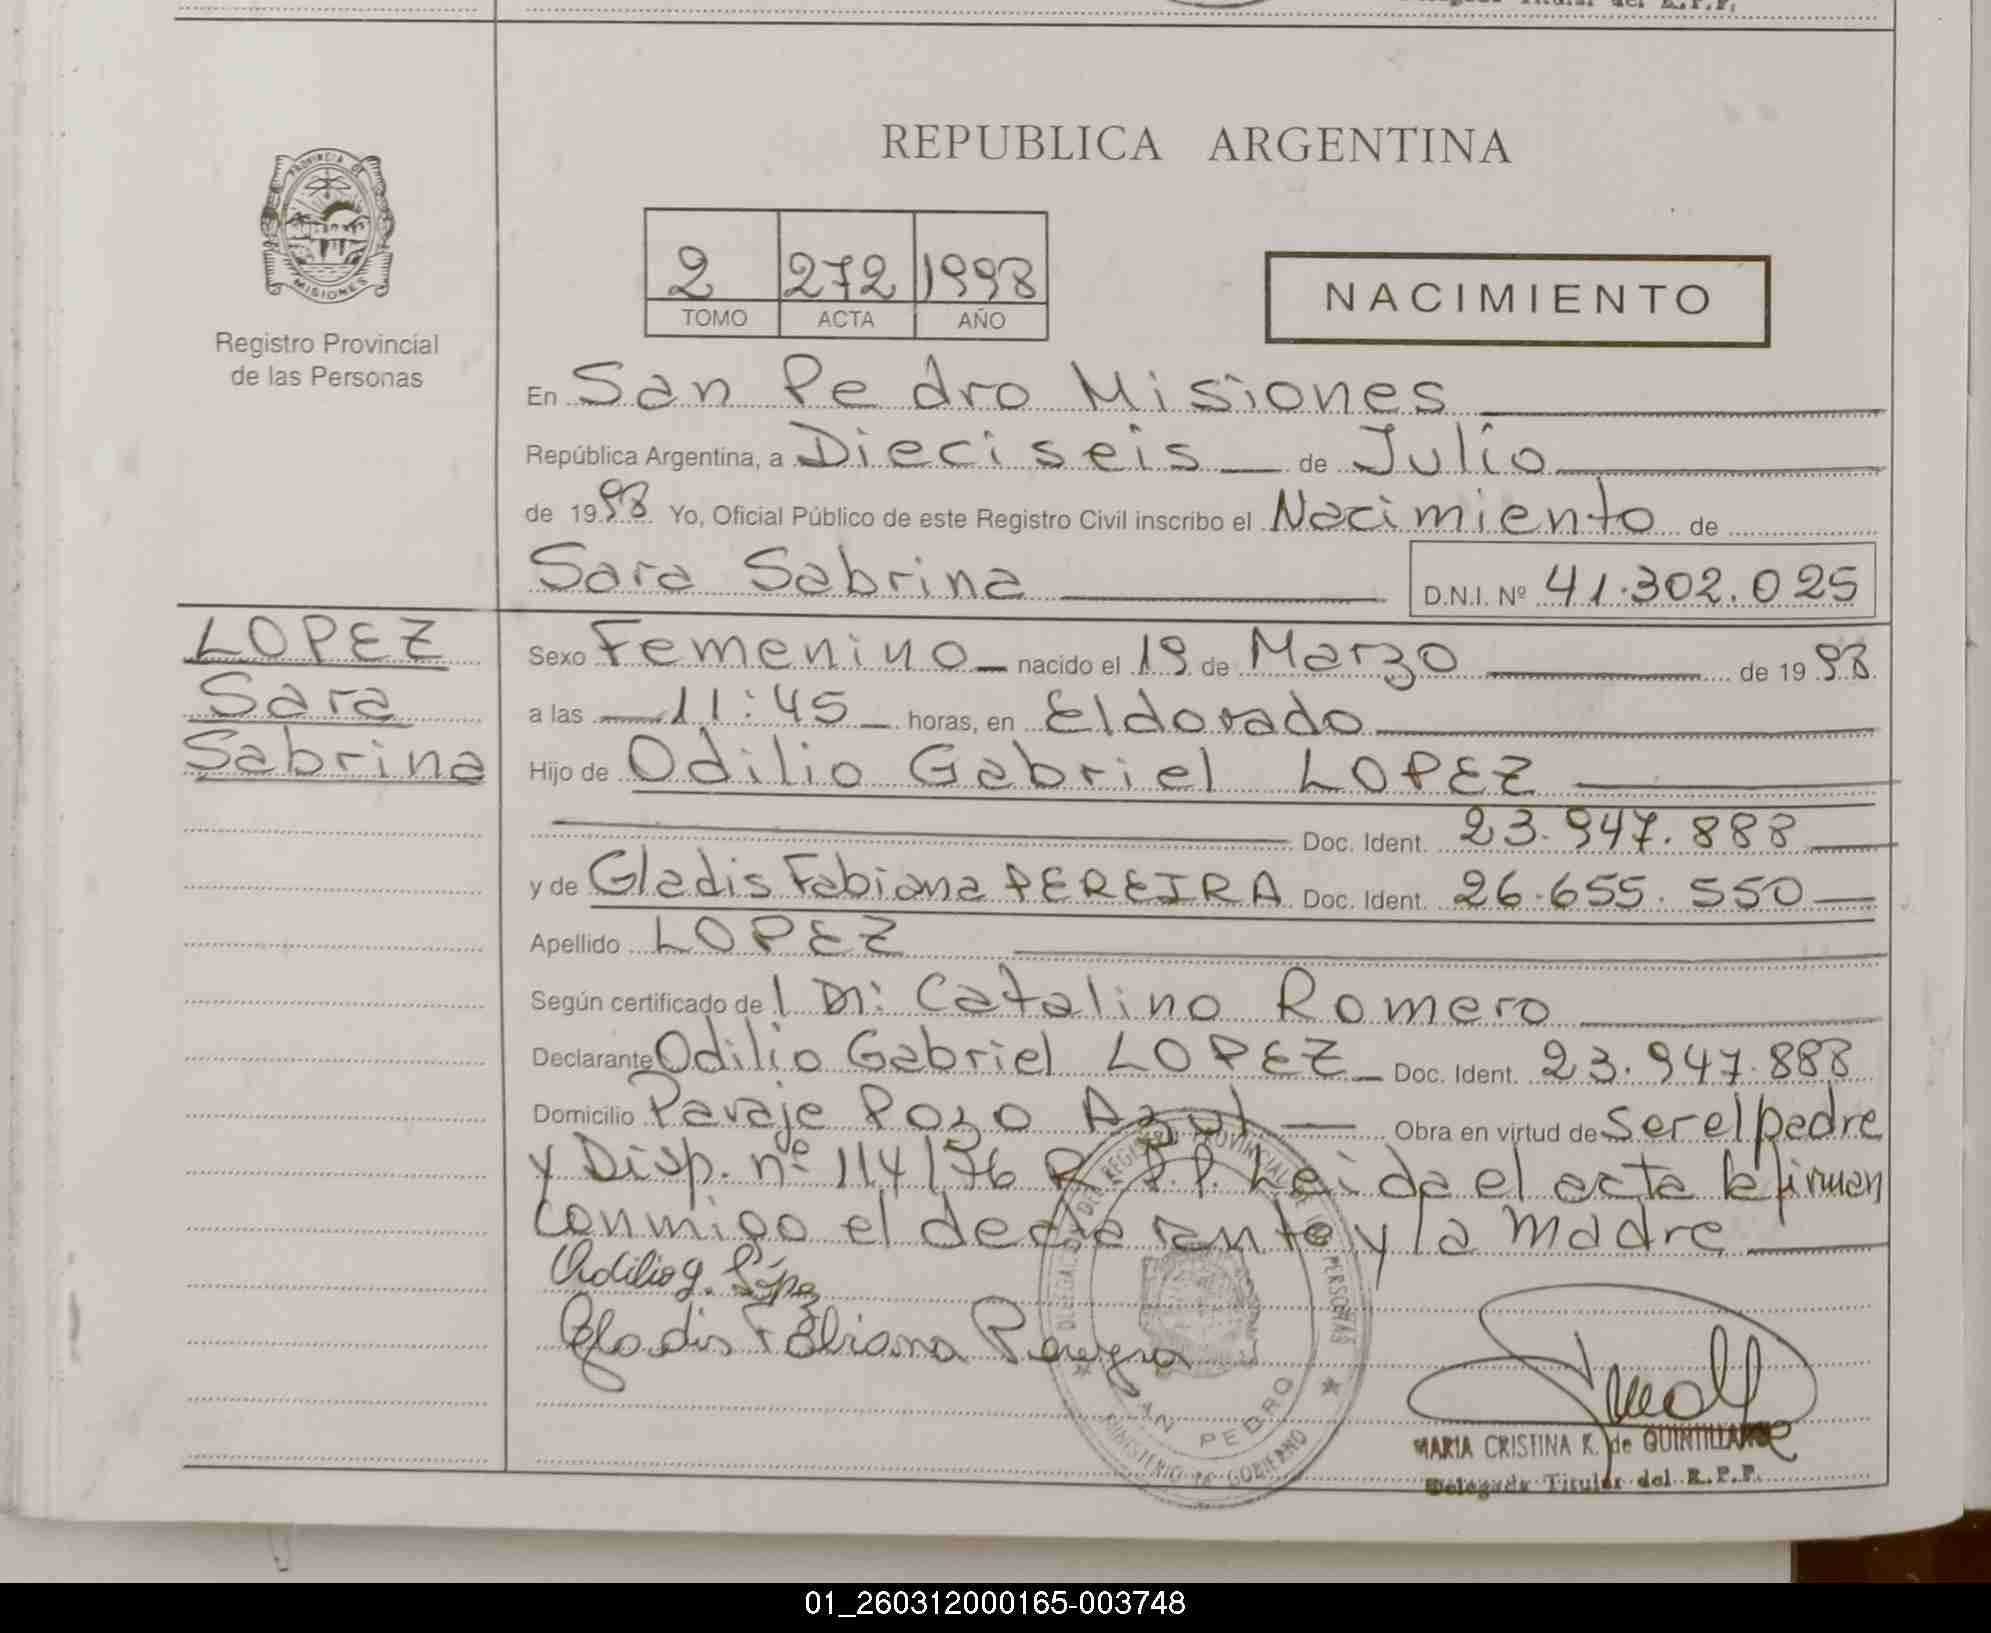 REPUBLICA ARGENTINA
PROVINCIA DE
MISIONES
Registro Provincial
de las Personas
2 272 1998
TOMO ACTA AÑO
NACIMIENTO
En San Pedro Misiones
República Argentina, a Dieciseis de Julio
de 1998 Yo, Oficial Público de este Registro Civil inscribo el Nacimiento de
Sara Sabrina D.N.I. Nº 41.302.025
LOPEZ
Sara
Sabrina
Sexo Femenino nacido el 19 de Marzo de 1998
a las 11:45 horas, en Eldorado
Hijo de Odilio Gabriel LOPEZ
Doc. Ident. 23.947.888
y de Gladis Fabiana PEREIRA Doc. Ident. 26.655.550
Apellido LOPEZ
Según certificado de Catalino Romero
Declarante Odilio Gabriel LOPEZ Doc. Ident. 23.947.888
Domicilio Paraje Pozo Azul Obra en virtud de ser el padre
y Disp. nº 114/76 R.P.P. Leida el acta la firman
conmigo el declarante y la madre
Odilio g. López
Gladis Fabiana Pereyra
SAN PEDRO
MINISTERIO DE GOBIERNO
MARIA CRISTINA K. de
Delegada Titular del R.P.P.
01_260312000165-003748